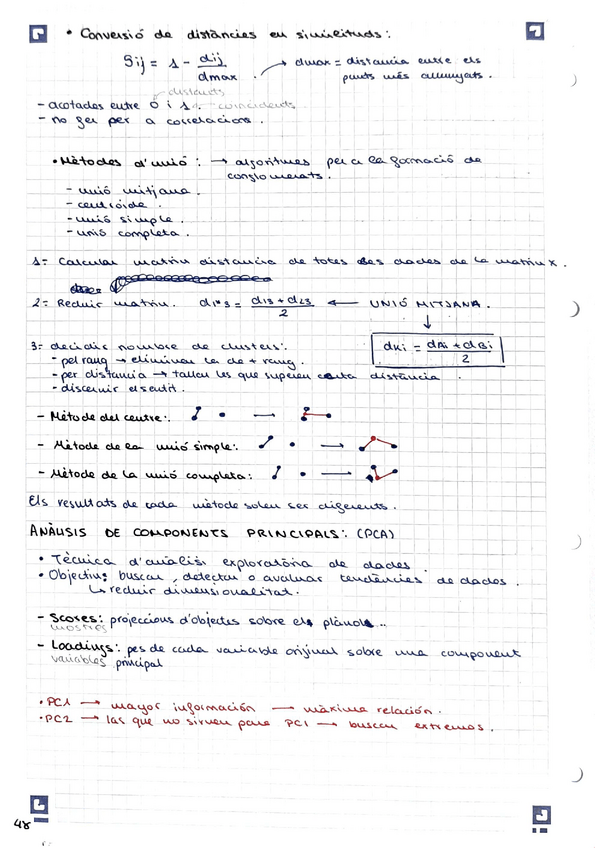 • Conversió de distàncies en similituds:
Sij = 1 - dij / dmax → dmax = distancia entre els
punts més allunyats.
distents
- acotades entre 0 i 1. coincidents
- no fer per a correlacions.
• Mètodes d'unió: → algoritmes per a la formació de
conglomerats.
- unió mitjana.
- centroide.
- unió simple.
- unió completa.
1= Calcular matriu distancia de totes les dades de la matriu X.
2= Reduir matriu. di*3 = di3 + dL3 / 2 ← UNIÓ MITJANA.
3= decidir nombre de clusters:
dKi = dAi + dBi / 2
- pel rang → eliminem la de + rang.
- per distancia → tallem les que superen certa distància.
- discernir el sentit.
- Mètode del centre: →
- Mètode de la unió simple: →
- Mètode de la unió completa: →
Els resultats de cada mètode solen ser diferents.
ANÀLISIS DE COMPONENTS PRINCIPALS: (PCA)
• Tècnica d'anàlisi exploratòria de dades.
• Objectiu: buscar, detectar o avaluar tendències de dades.
↳ reduir dimensionalitat.
- Scores: projeccions d'objectes sobre els plànols..
mostres
- Loadings: pes de cada variable original sobre una component
variables principal
• PC1 → mayor información → màxima relación.
• PC2 → las que no sirven para PC1 → buscan extremos.
48